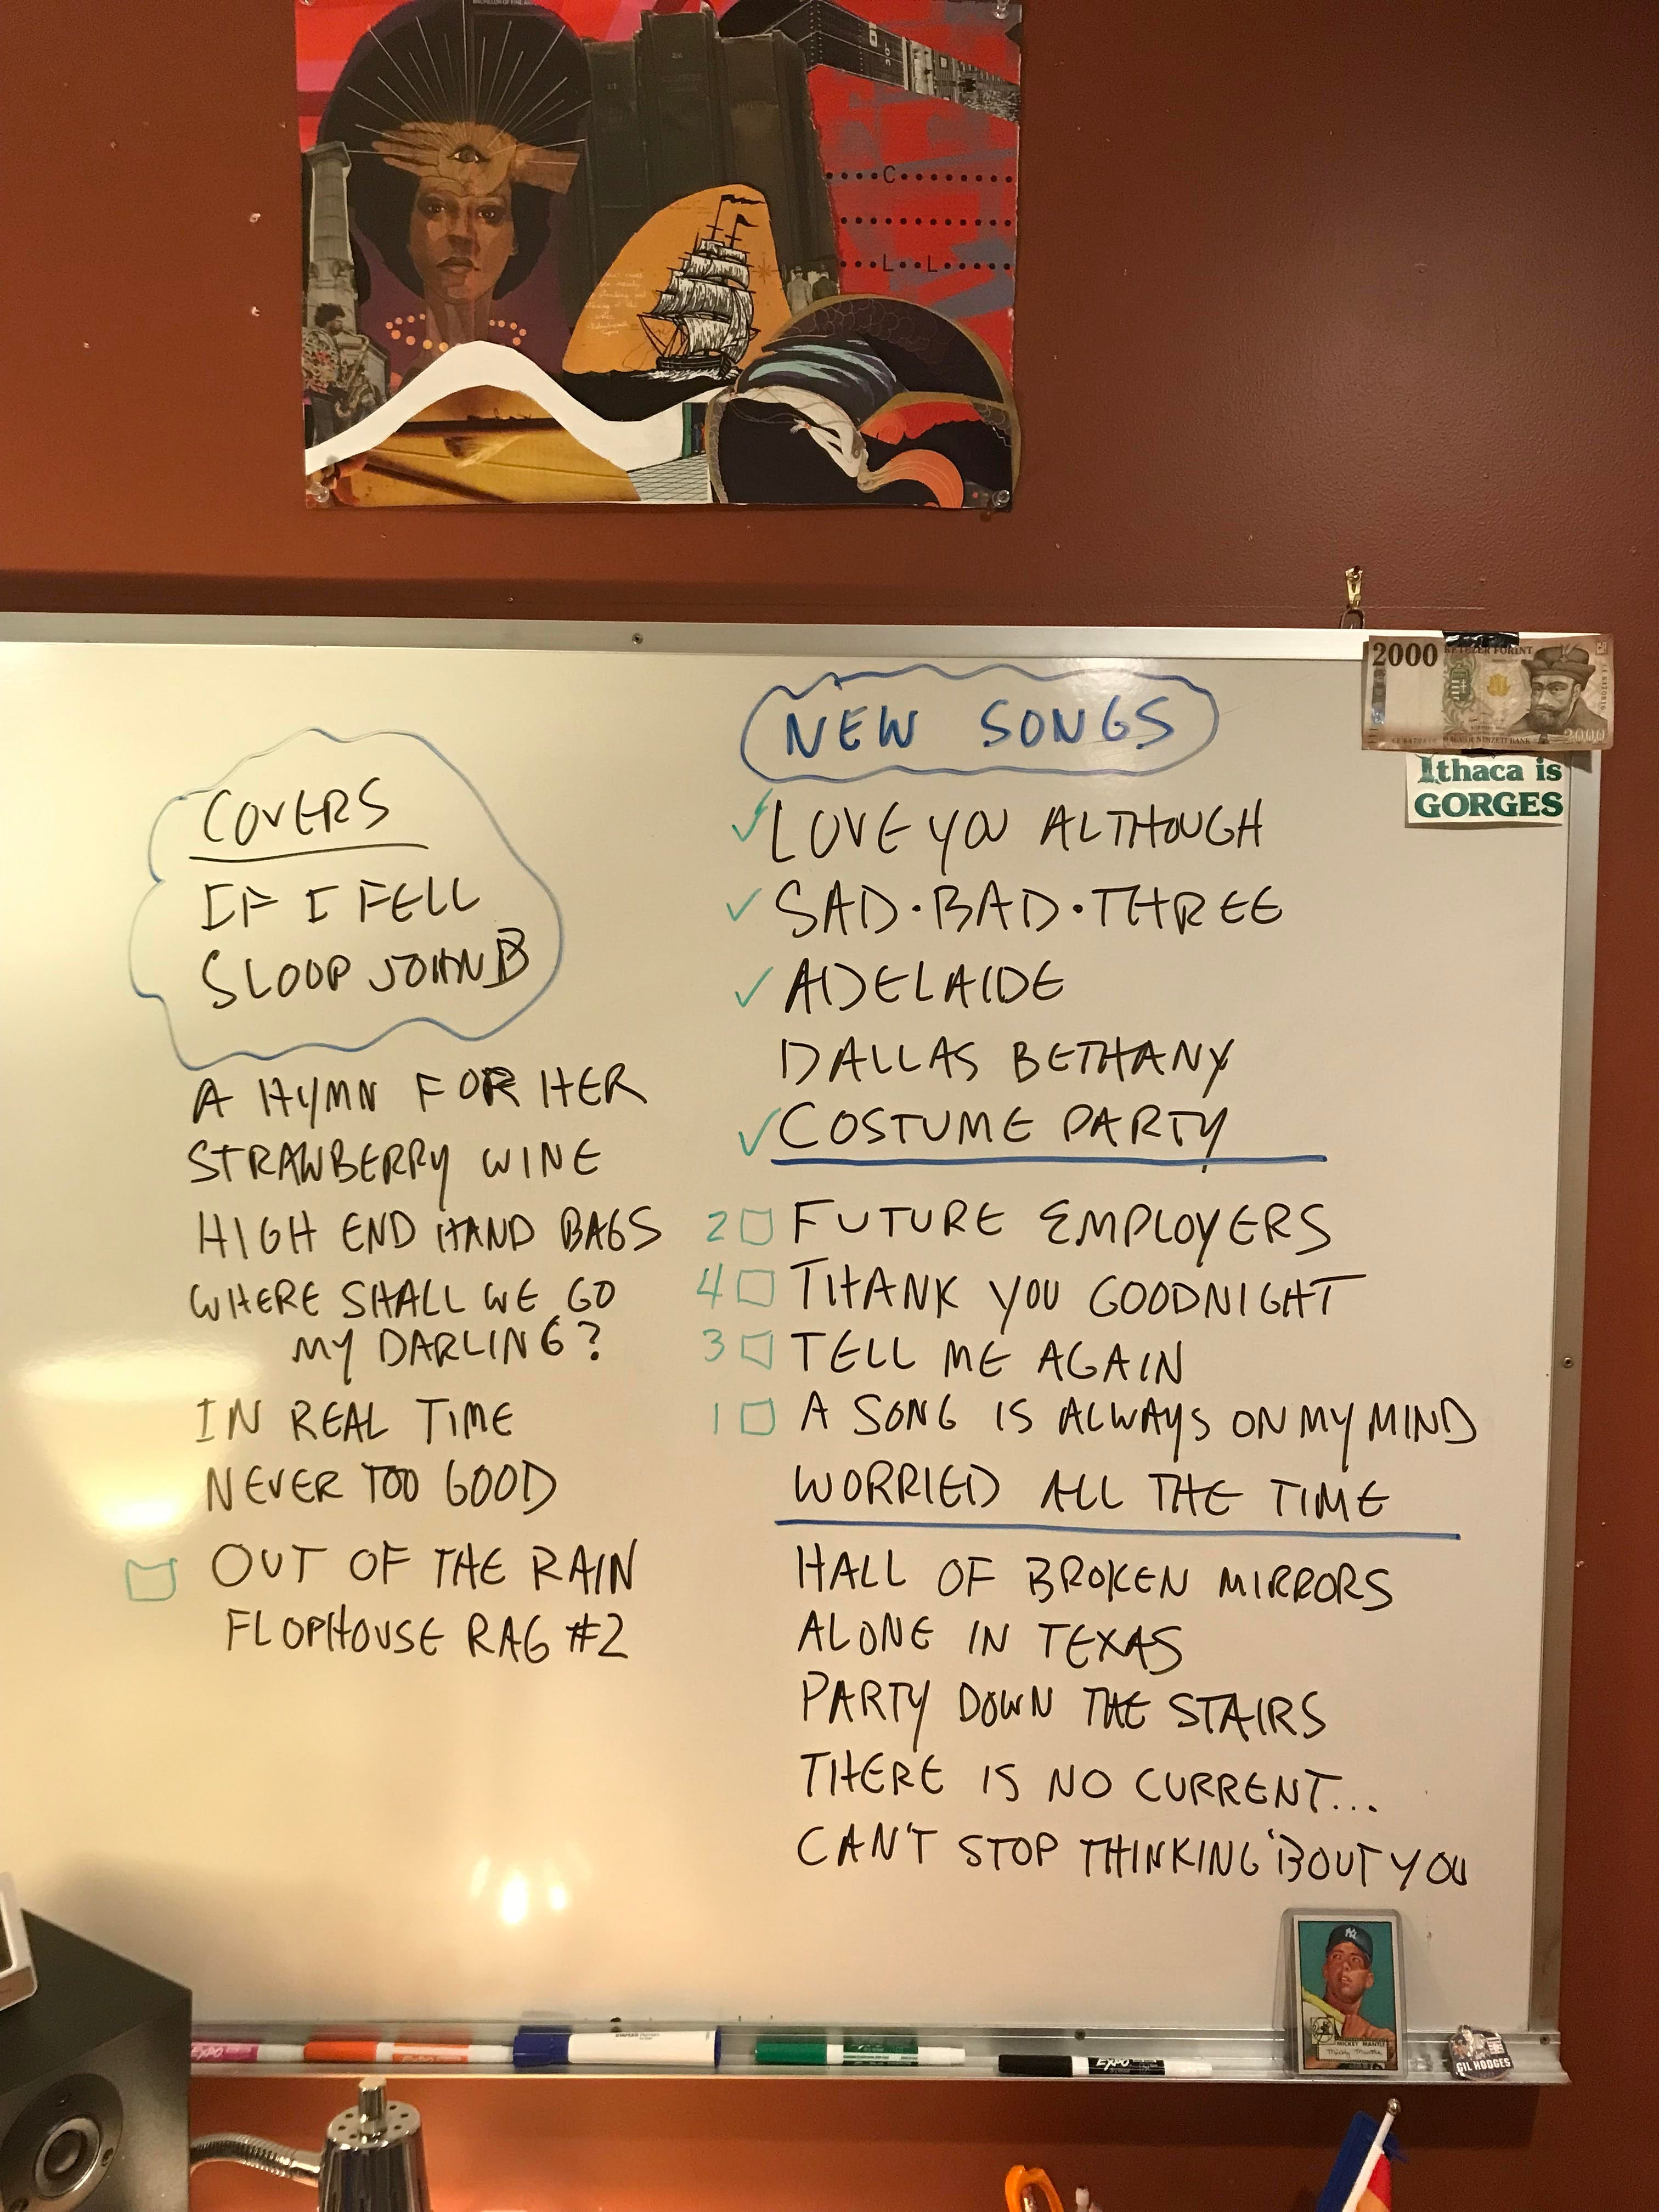 C
L L
2000 KÉTEZER FORINT
MAGYAR NEMZETI BANK 2000
Ithaca is
GORGES
COVERS
IF I FELL
SLOOP JOHN B
A HYMN FOR HER
STRAWBERRY WINE
HIGH END HAND BAGS
WHERE SHALL WE GO
MY DARLING?
IN REAL TIME
NEVER TOO GOOD
OUT OF THE RAIN
FLOPHOUSE RAG #2
NEW SONGS
✓ LOVE YOU ALTHOUGH
✓ SAD·BAD·THREE
✓ ADELAIDE
DALLAS BETHANY
✓ COSTUME PARTY
2 □ FUTURE EMPLOYERS
4 □ THANK YOU GOODNIGHT
3 □ TELL ME AGAIN
1 □ A SONG IS ALWAYS ON MY MIND
WORRIED ALL THE TIME
HALL OF BROKEN MIRRORS
ALONE IN TEXAS
PARTY DOWN THE STAIRS
THERE IS NO CURRENT...
CAN'T STOP THINKING 'BOUT YOU
NY
MICKEY MANTLE
Mickey Mantle
GIL HODGES
EXPO
EXPO